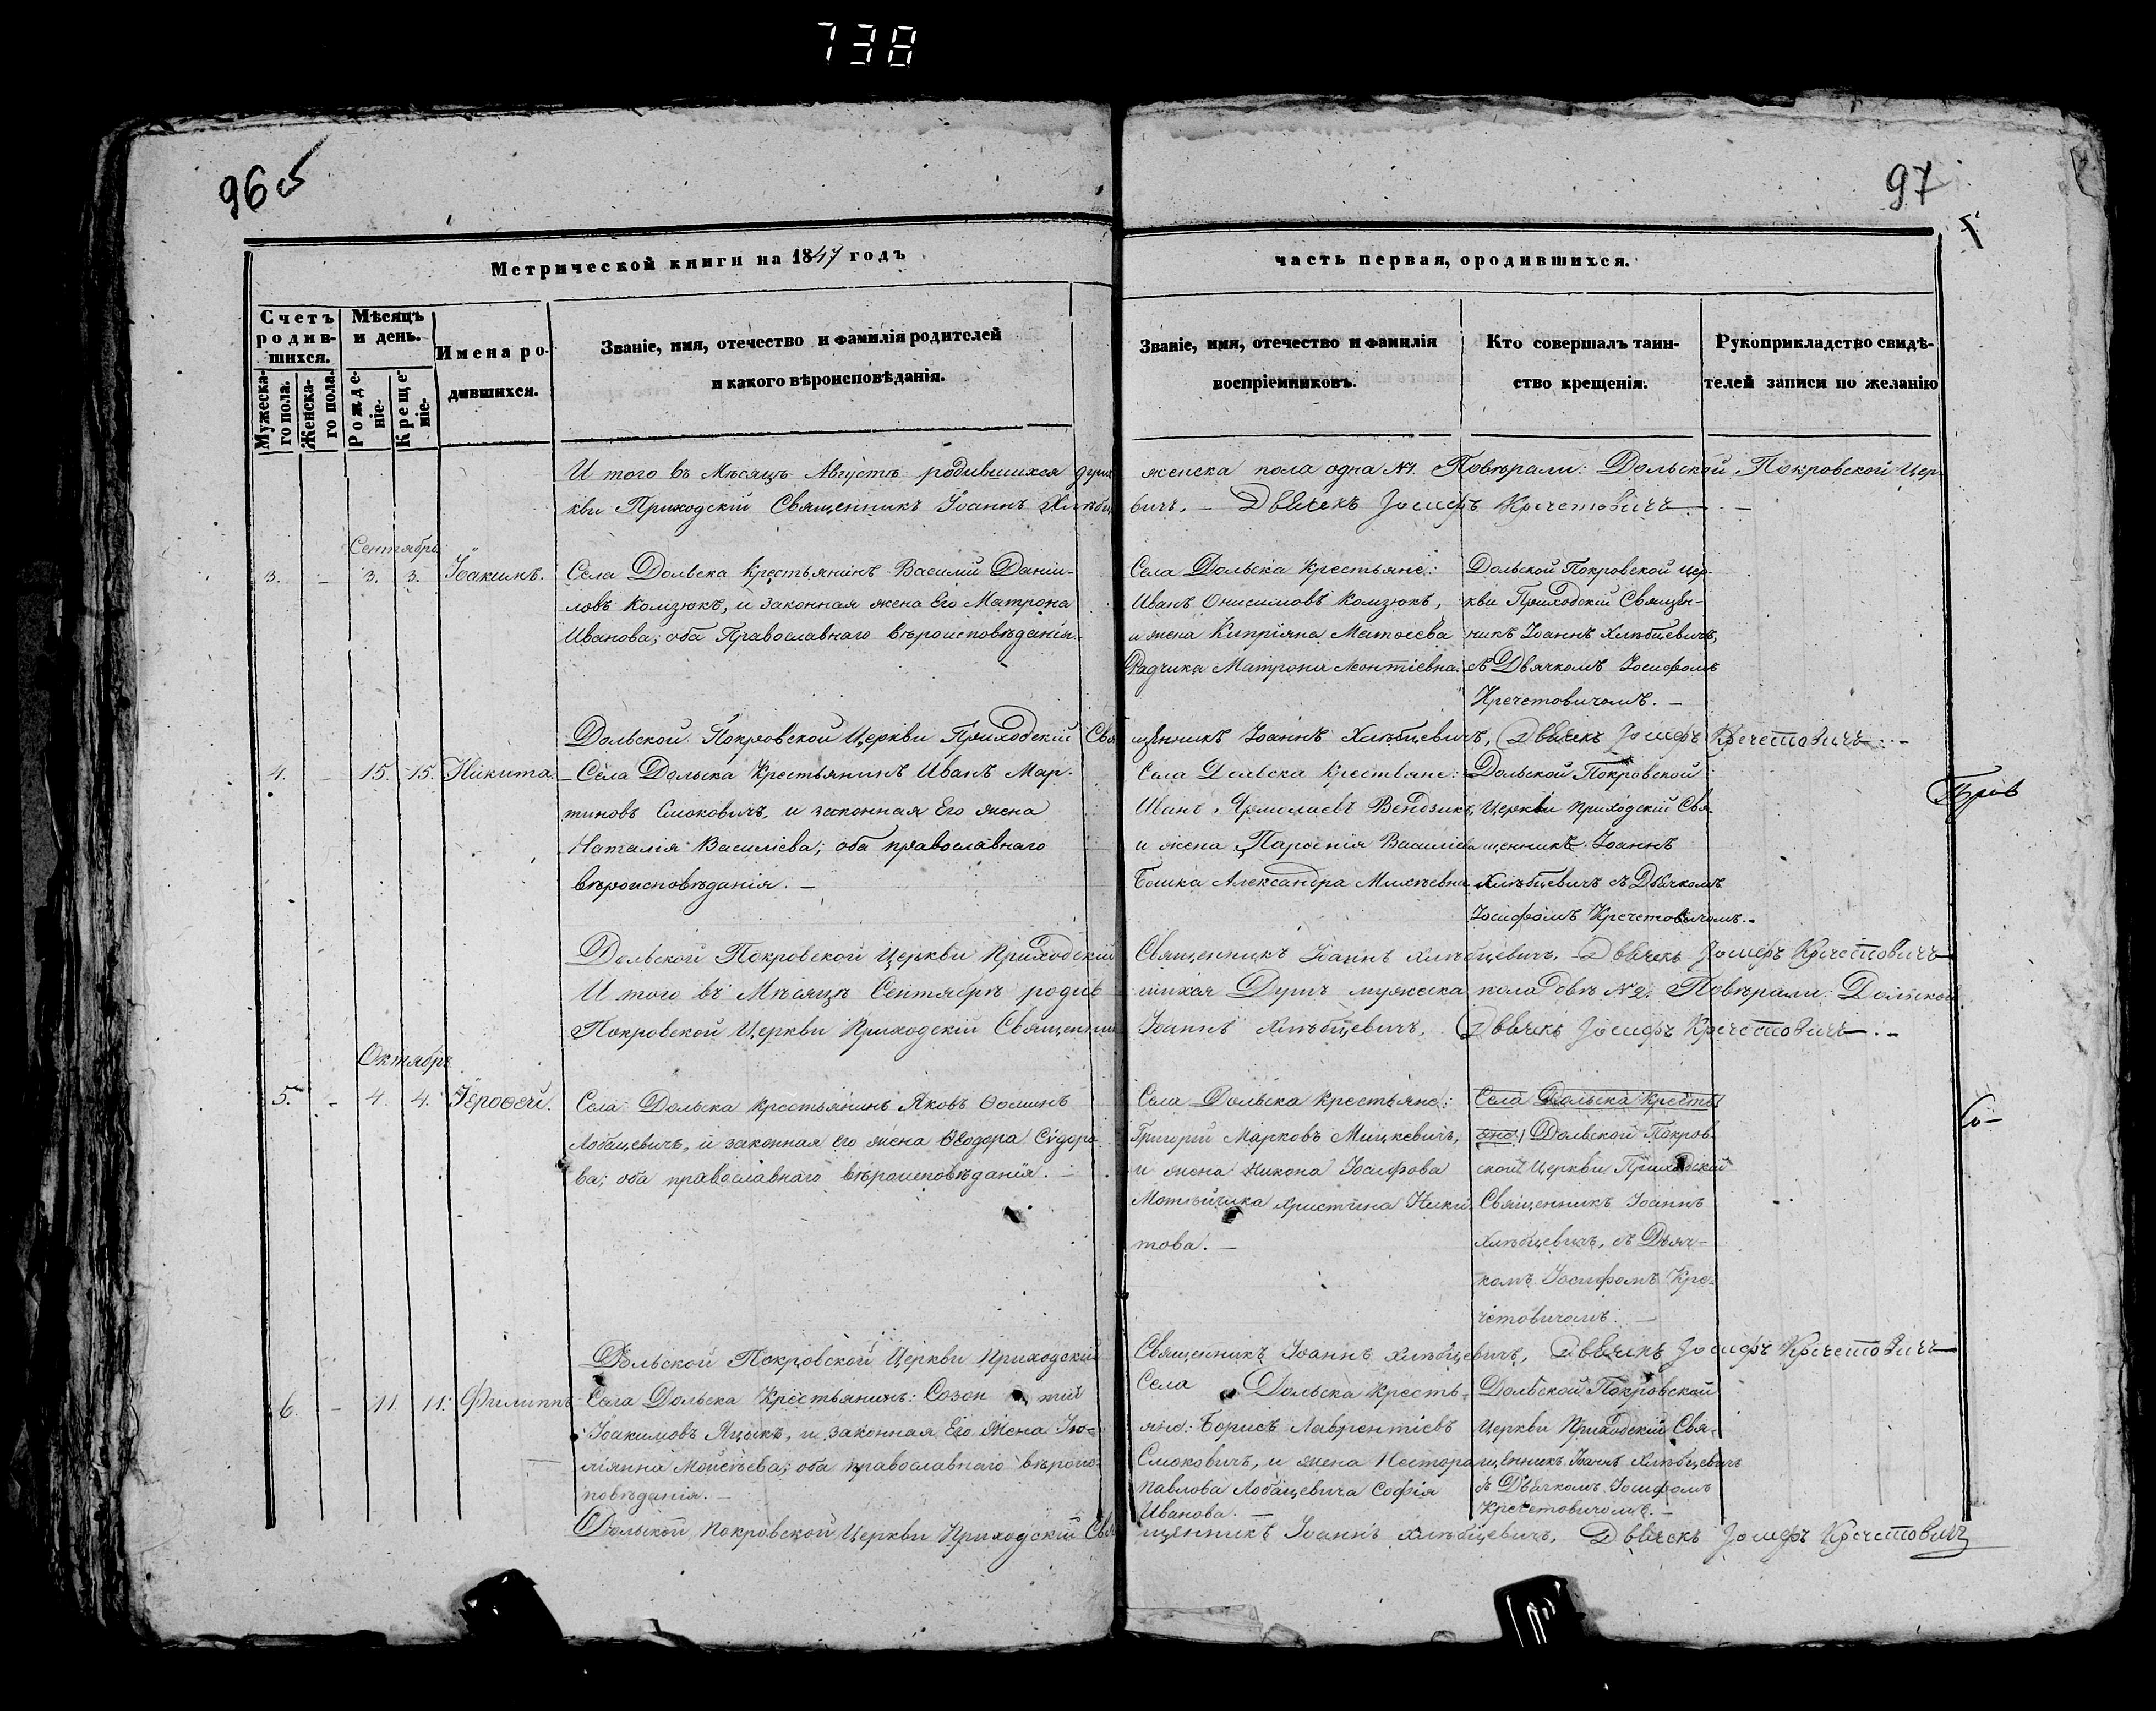 738
96 об
97
Метрической книги на 1847 годъ
часть первая, ородившихся.
Счетъ родив-
шихся.
Мѣсяцъ
и день.
Имена ро-
дившихся.
Званіе, имя, отечество и фамилія родителей
и какого вѣроисповѣданія.
Званіе, имя, отечество и фамилія
воспріемниковъ.
Кто совершалъ таин-
ство крещенія.
Рукоприкладство свидѣ-
телей записи по желанію
Мужеска-
го пола.
Женска-
го пола.
Рожде-
ніе.
Креще-
ніе.
И того въ Мѣсяцѣ Августѣ родившихся душ женска пола одна №1. Повѣрали: Дольской Покровской Цер-
кви Приходскій Священникъ Іоаннъ Хлѣбцевичъ. – Дьячекъ Іосифъ Кречетовичъ –
Сентябрь
3. – 3. 3. Іоакимъ.
Села Дольска Крестьянинъ Василій Даніи-
ловъ Комзюкъ, и законная жена Его Матрона
Иванова; оба Православнаго вѣроисповѣданія.
Села Дольска Крестьяне:
Иванъ Онисимовъ Комзюкъ,
и жена Кипріяна Матѳеева
Радчика Матрона Леонтіевна.
Дольской Покровской Цер-
кви Приходскій Священ-
никъ Іоаннъ Хлѣбцевичъ,
съ Дьячкомъ Іосифомъ
Кречетовичомъ. –
Дольской Покровской Церкви Приходскій Священникъ Іоаннъ Хлѣбцевичъ, Дьячекъ Іосифъ Кречетовичъ. –
4. – 15. 15. Никита.
Села Дольска Крестьянинъ Иванъ Мар-
тиновъ Смоковичъ, и законная Его жена
Наталія Василіева; оба православнаго
вѣроисповѣданія. –
Села Дольска Крестьяне:
Иванъ Ярмолаевъ Вендзикъ,
и жена Парѳенія Василіева
Бошка Александра
Дольской Покровской
Церкви Приходскій Свя-
щенникъ Іоаннъ
Хлѣбцевичъ съ Дьячкомъ
Іосифомъ Кречетовичомъ. –
Дольской Покровской Церкви Приходскій Священникъ Іоаннъ Хлѣбцевичъ. Дьячекъ Іосифъ Кречетовичъ
И того въ Мѣсяцѣ Сентябрѣ родившихся Душъ мужеска пола двѣ №2. Повѣрали: Дольской
Покровской Церкви Приходскій Священникъ Іоаннъ Хлѣбцевичъ, Дьячекъ Іосифъ Кречетовичъ. –
Октябрь
5. – 4. 4. Іероѳей.
Села Дольска Крестьянинъ Яковъ Ѳоминъ
Лобацевичъ, и законная его жена Ѳеодора Сѵдоро-
ва; оба православнаго вѣроисповѣданія. –
Села Дольска Крестьяне:
Григорій Марковъ Мицкевичъ,
и жена Никона Іосифова
Мотвѣйчика Христина Ники-
това. –
Села Дольска Кресть
яне/ Дольской Покров-
ской Церкви Приходскій
Священникъ Іоаннъ
Хлѣбцевичъ, съ Дьяч-
комъ Іосифомъ Кре-
четовичомъ. –
Дольской Покровской Церкви Приходскій Священникъ Іоаннъ Хлѣбцевичъ, Дьячекъ Іосифъ Кречетовичъ
6. – 11. 11. Филиппъ
Села Дольска Крестьянинъ: Созон тій
Іоакимовъ Яцыкъ, и законная Его Жена Іу-
ліянна Мойсѣева; оба православнаго вѣроис-
повѣданія. –
Села Дольска Кресть-
яне: Борисъ Лаврентіевъ
Смоковичъ, и жена Нестора
Павлова Лобацевича Софія
Иванова. –
Дольской Покровской
Церкви Приходскій Свя-
щенникъ Іоаннъ Хлѣбцевичъ
съ Дьячкомъ Іосифомъ
Кречетовичомъ. –
Дольской Покровской Церкви Приходскій Священникъ Іоаннъ Хлѣбцевичъ, Дьячекъ Іосифъ Кречетовичъ